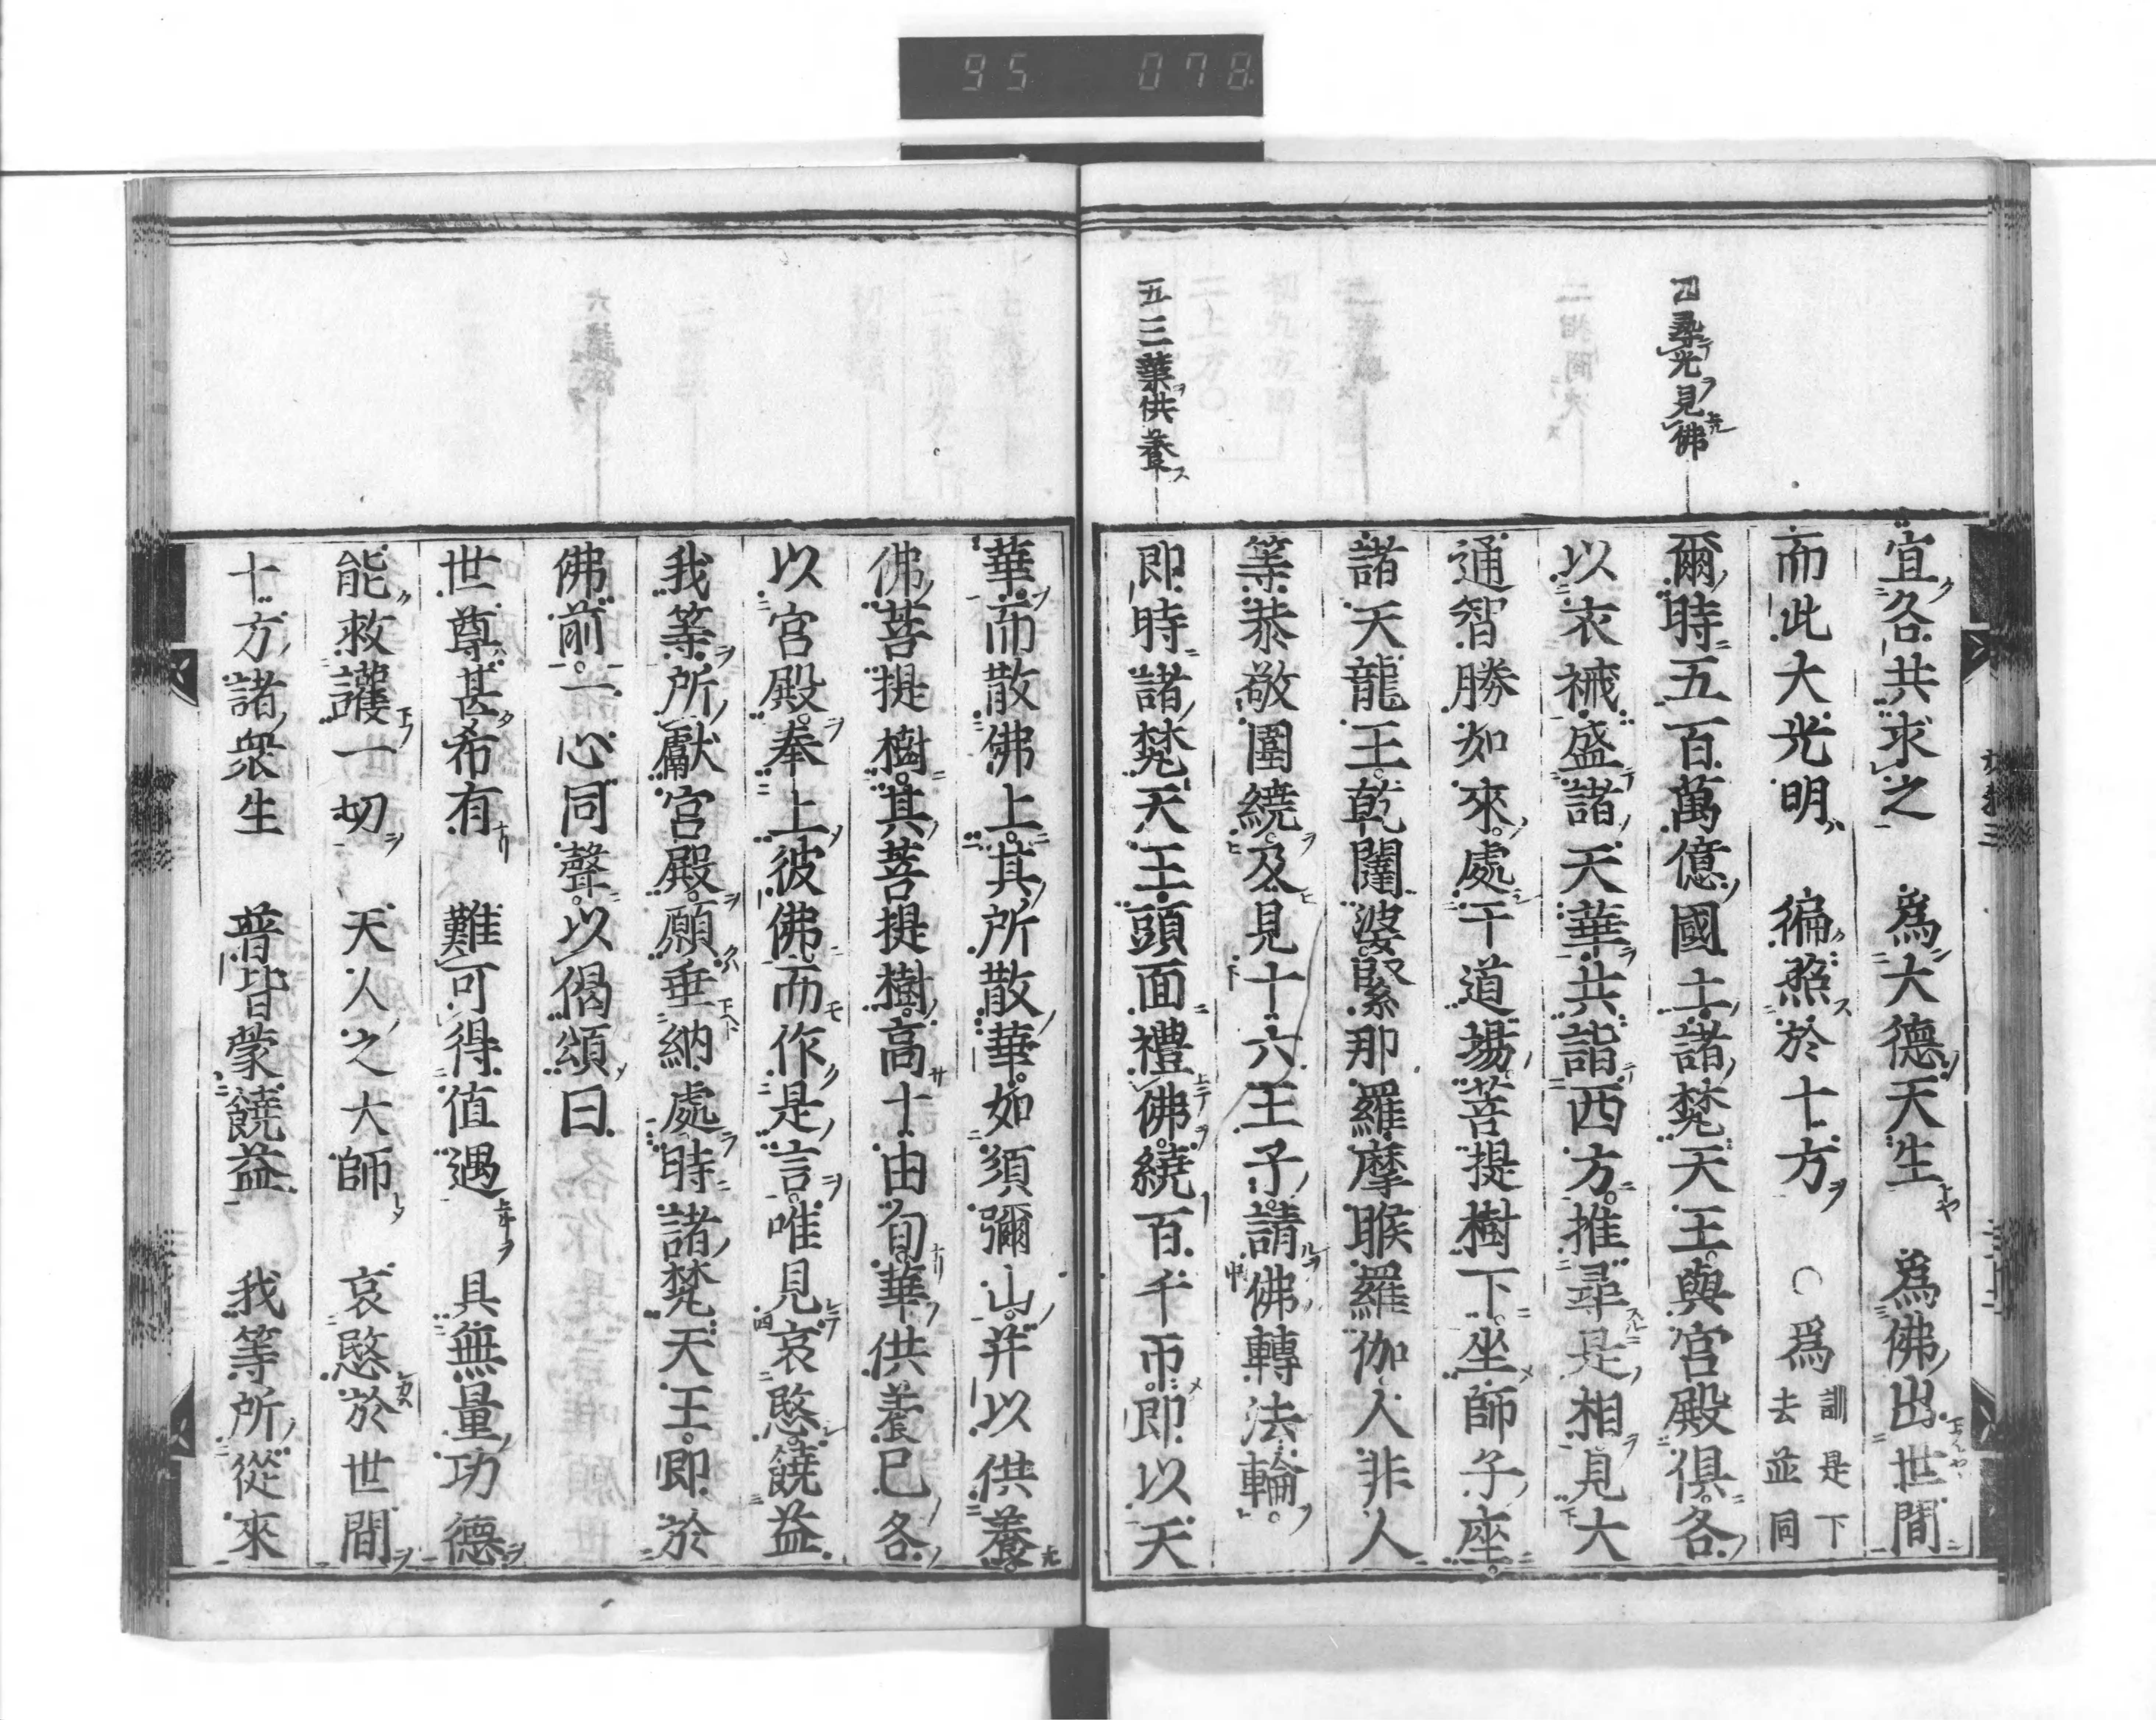 95 078
四尋光見佛
五三業供養
宜各共求之　爲大德天生　爲佛出世間
而此大光明　徧照於十方　○爲訓是下去並同
爾時五百萬億國土諸梵天王與宮殿俱各
以衣祴盛諸天華共詣西方推尋是相見大
通智勝如來處于道場菩提樹下坐師子座
諸天龍王乾闥婆緊那羅摩睺羅伽人非人
等恭敬圍繞及見十六王子請佛轉法輪
即時諸梵天王頭面禮佛繞百千帀即以天
華而散佛上其所散華如須彌山并以供養
佛菩提樹其菩提樹高十由旬華供養已各
以宮殿奉上彼佛而作是言唯見哀愍饒益
我等所獻宮殿願垂納處時諸梵天王即於
佛前一心同聲以偈頌曰
世尊甚希有　難可得值遇　具無量功德
能救護一切　天人之大師　哀愍於世間
十方諸衆生　普皆蒙饒益　我等所從來